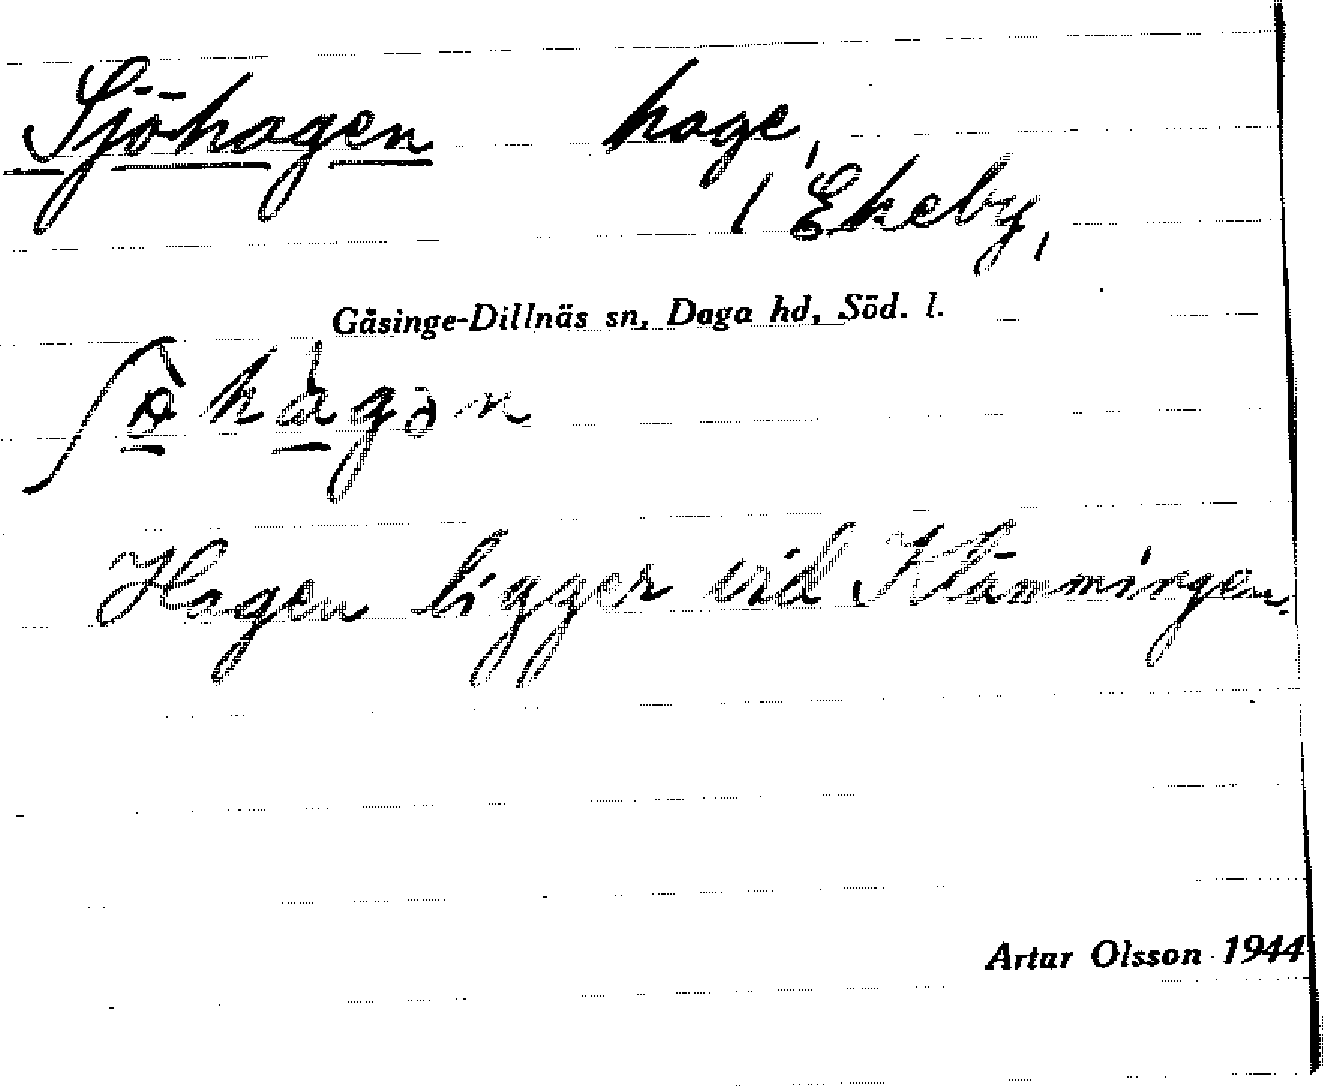 Sjöhagen hage,
/ Ekeby,
Gåsinge-Dillnäs sn, Daga hd, Söd. l.
Hagen ligger vid Klämmingen.
Artur Olsson 1944